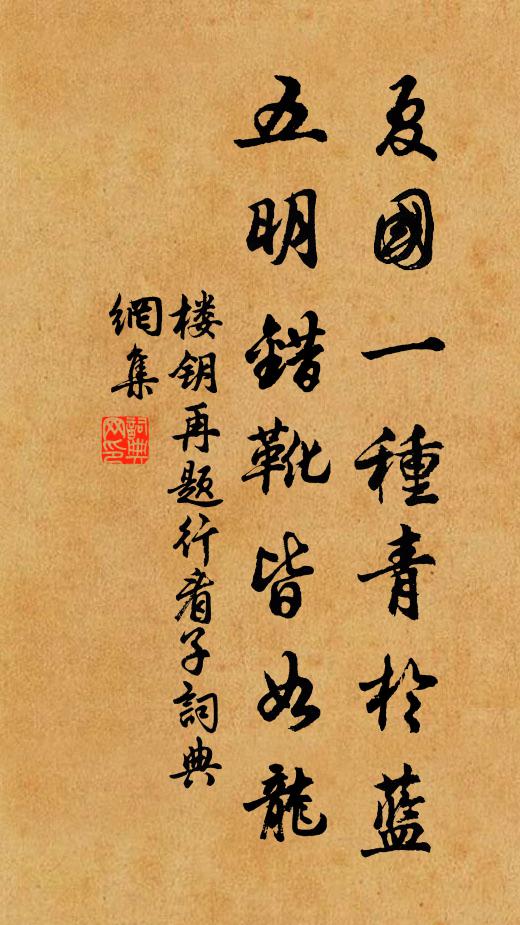 夏國一種青於藍
五明錯靴皆如龍
楼钥再题行看子詞典
網集
詞典
网印